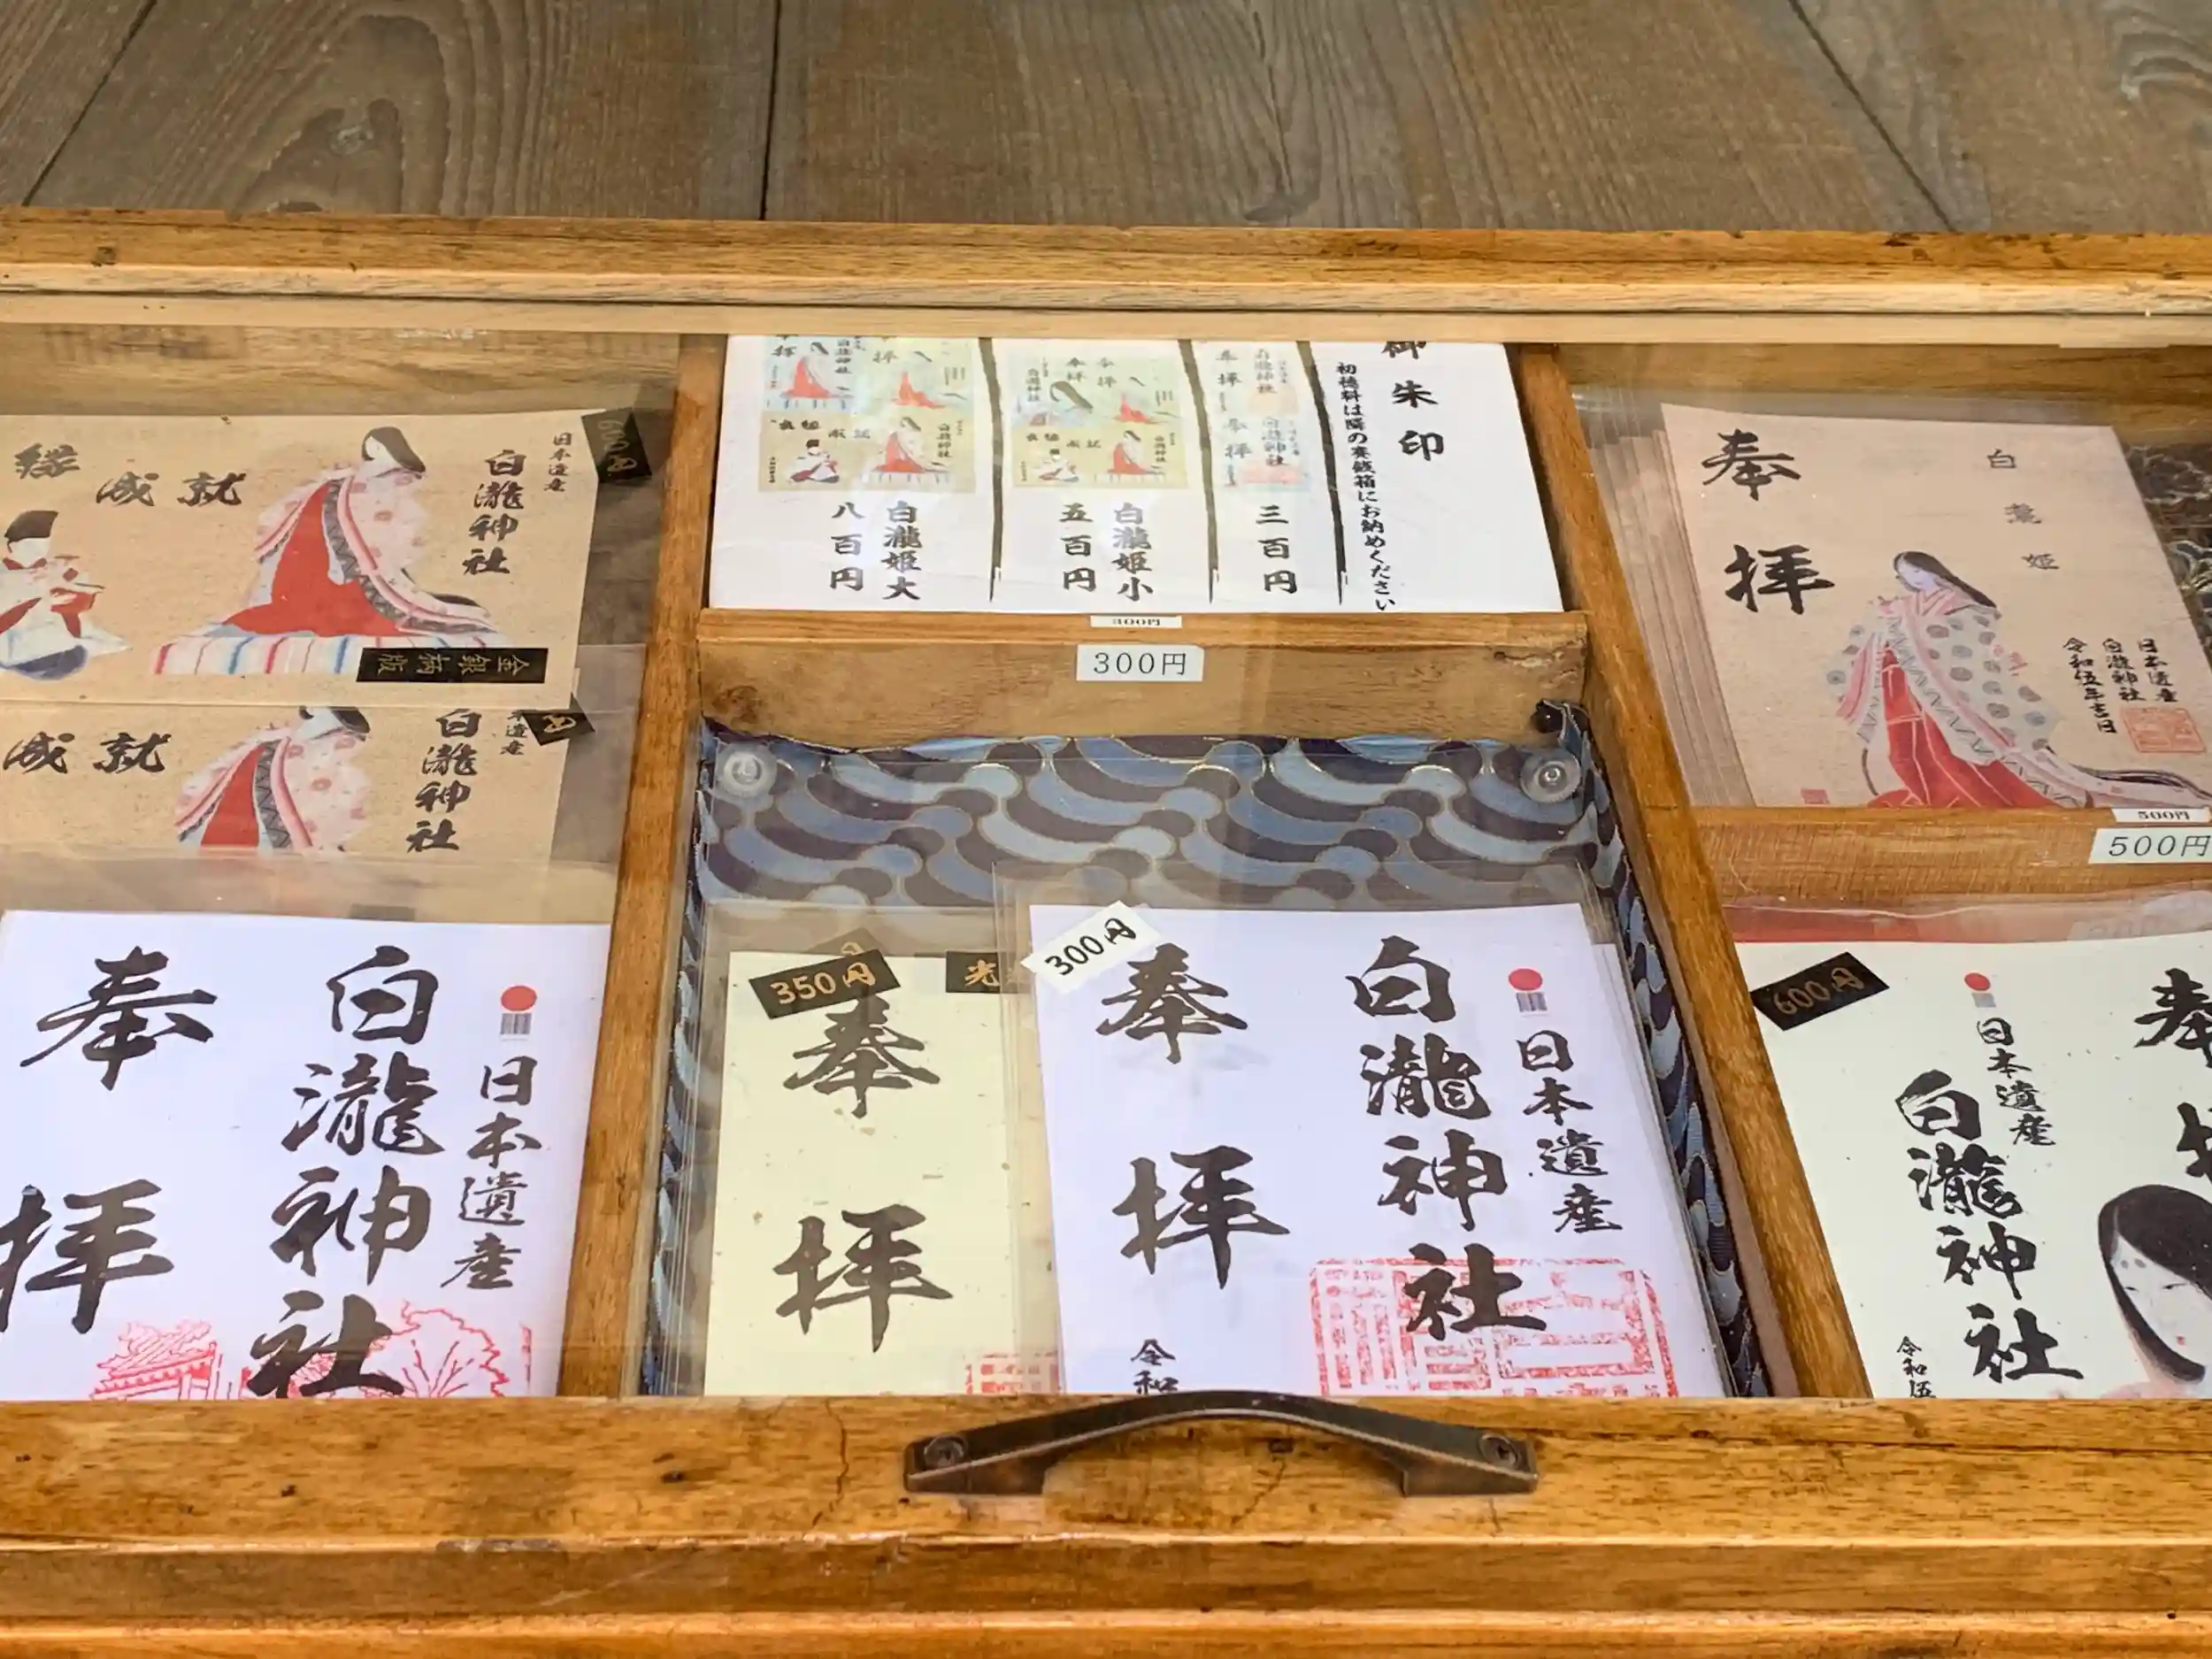 縁
成就
白瀧神社
日本遺産
600円
金銀柄版
成就
白瀧神社
奉拝
白瀧神社
日本遺産
御朱印
初穂料は隣の賽銭箱にお納めください
三百円
白瀧姫小
五百円
白瀧姫大
八百円
300円
300円
350円
奉拝
光
300円
奉拝
白瀧神社
日本遺産
令和
奉拝
白瀧姫
日本遺産
白瀧神社
令和伍年吉日
500円
500円
600円
日本遺産
白瀧神社
令和伍
奉